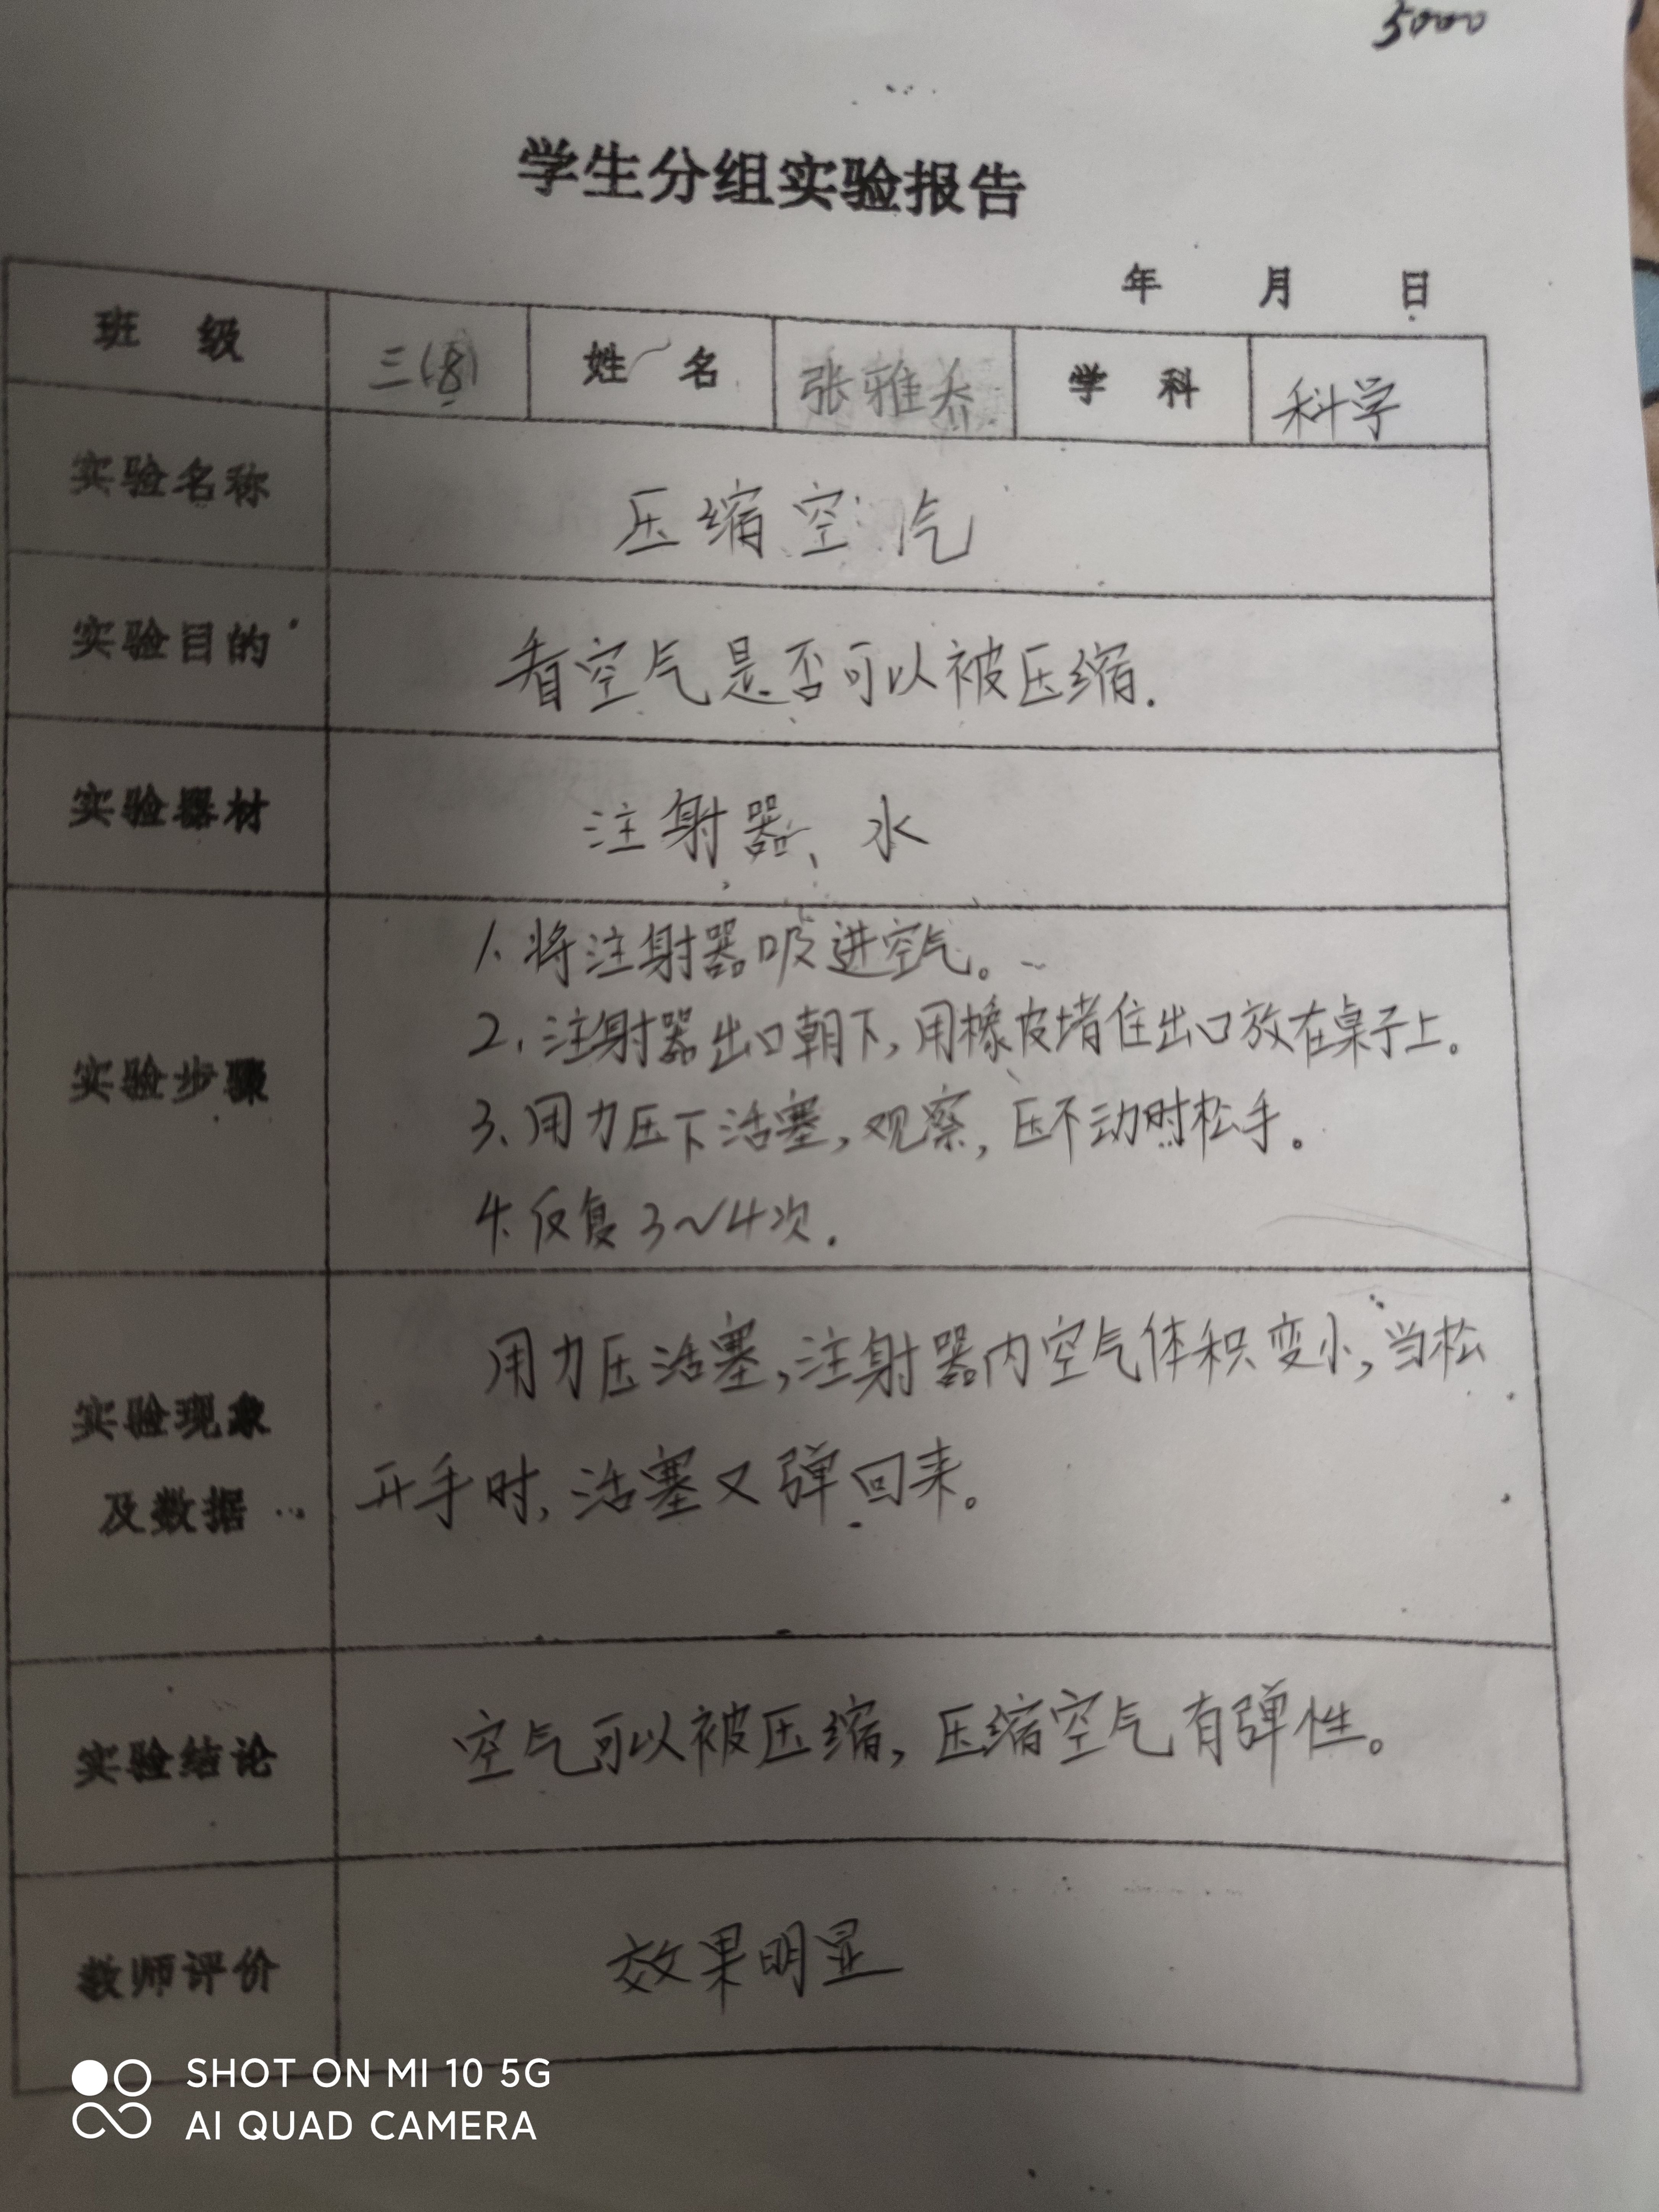 5000
学生分组实验报告
年 月 日
班 级 三(8) 姓 名 张雅乔 学 科 科学
实验名称 压缩空气
实验目的 看空气是否可以被压缩.
实验器材 注射器、水
实验步骤
1、将注射器吸进空气。
2、注射器出口朝下,用橡皮堵住出口放在桌子上。
3、用力压下活塞,观察,压不动时松手。
4、反复3~4次.
实验现象
及数据
用力压活塞,注射器内空气体积变小,当松
开手时,活塞又弹回来。
实验结论 空气可以被压缩,压缩空气有弹性。
教师评价 效果明显
SHOT ON MI 10 5G
AI QUAD CAMERA